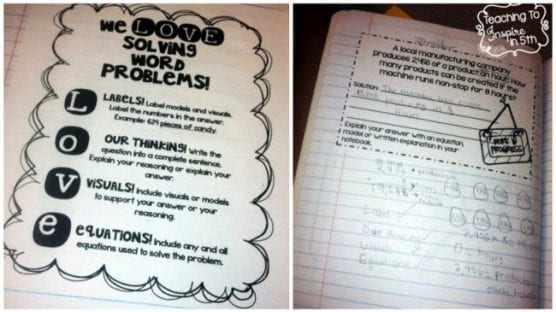 We LOVE
SOLVING
WORD
PROBLEMS!
L
LABELS! Label models and visuals.
Label the numbers in the answer.
Example: 624 pieces of candy.
O
OUR THINKING! Write the
question into a complete sentence.
Explain your reasoning or explain your
answer.
V
VISUALS! Include visuals or models
to support your answer or your
reasoning.
e
eQUATIONS! Include any and all
equations used to solve the problem.
Teaching To
Inspire
in 5th
A local manufacturing company
produces 2,456 of a product an hour. How
many products can be created if the
machine runs non-stop for 8 hours?
Solution: The machine will create
products in 8
hours
Explain your answer with an equation,
model or written explanation in your
notebook.
WORK IN
PROGRESS
2,456
19,648
Label ✓
Our thinking ✓
Visuals ✓
Equations ✓
2,456 x 8 =
= hours
2,456 = products
each hour